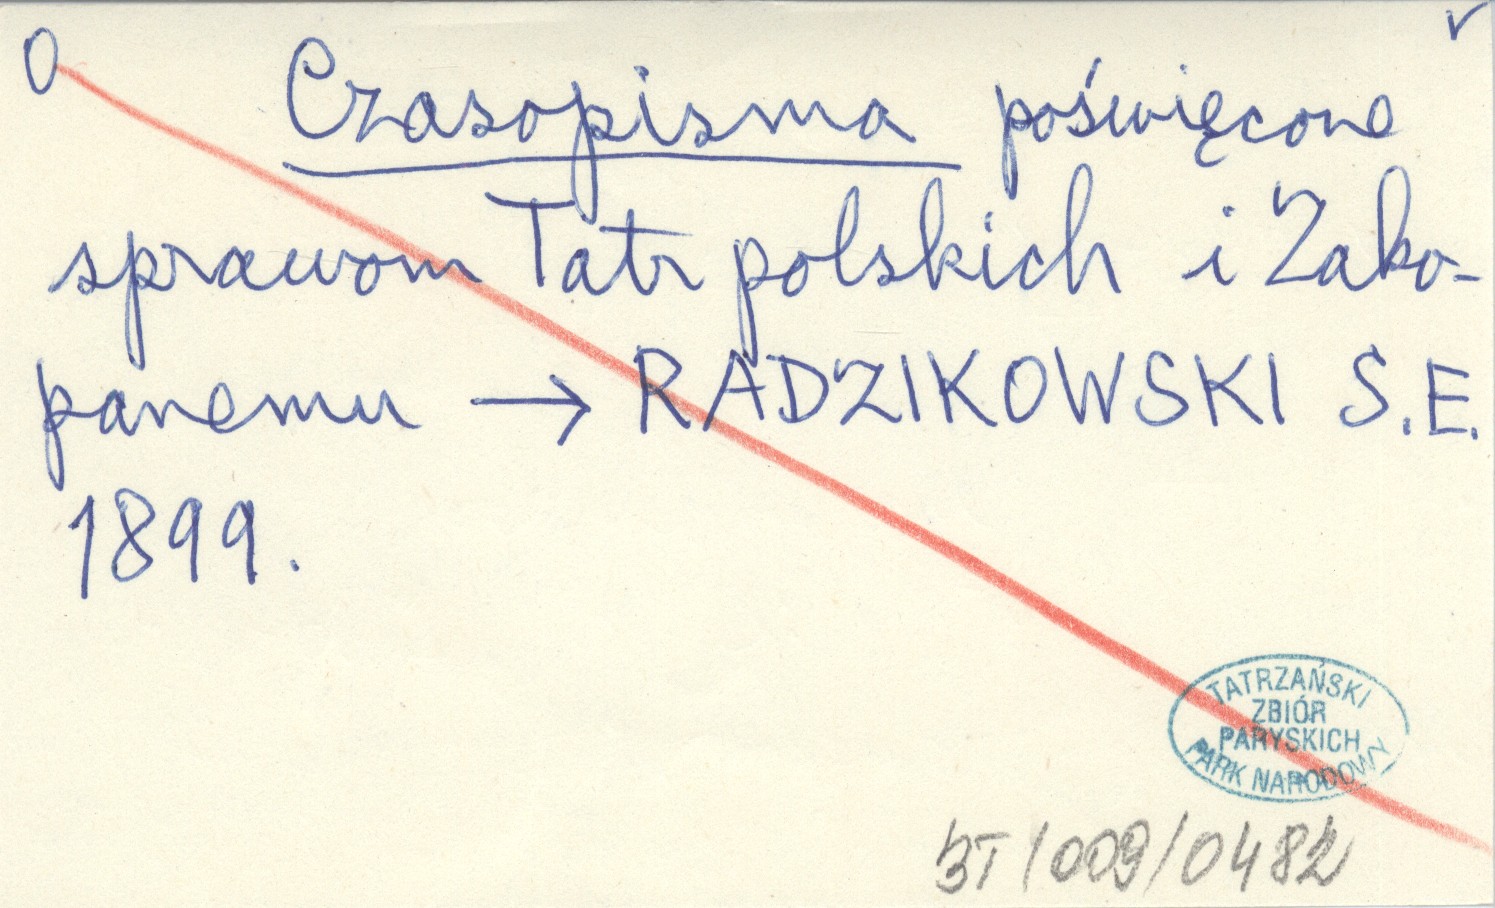 0 Czasopisma poświęcone v
sprawom Tatr polskich i Zako-
panemu → RADZIKOWSKI S.E.
1899.
TATRZAŃSKI
ZBIÓR
PARYSKICH
PARK NARODOWY
BT/009/0482